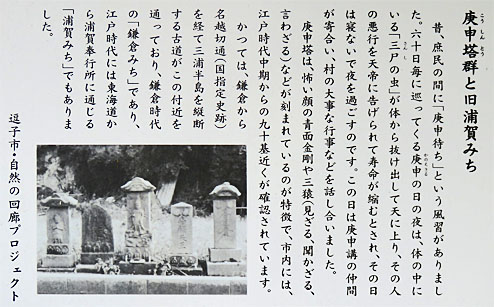 庚申塔群と旧浦賀みち
こう しん とう
昔、庶民の間に「庚申待ち」という風習がありまし
た。六十日毎に巡ってくる庚申の日の夜は、体の中に
かのえさる
いる「三尸の虫」が体から抜け出して天に上り、その人
さんし
の悪行を天帝に告げられて寿命が縮むとされ、その日
は寝ないで夜を過ごすのです。この日は庚申講の仲間
が寄合い、村の大事な行事などを話し合いました。
庚申塔は、怖い顔の青面金剛や三猿(見ざる、聞かざる、
言わざる)などが刻まれているのが特徴で、市内には、
江戸時代中期からの九十基近くが確認されています。
かつては、鎌倉から
名越切通(国指定史跡)
を経て三浦半島を縦断
する古道がこの付近を
通っており、鎌倉時代
の「鎌倉みち」であり、
江戸時代には東海道か
ら浦賀奉行所に通じる
「浦賀みち」でもありま
した。
逗子市・自然の回廊プロジェクト